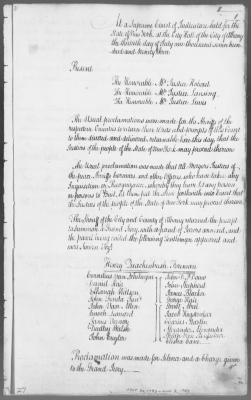 At a Supreme Court of Judicature held for the
State of New York, at the City Hall of the City of Albany
the eleventh day of July one thousand seven hundred
and ninety three
Present
The Honorable Mr Justice Hobart
The Honorable Mr Justice Lansing
The Honorable Mr Justice Lewis
The usual proclamations were made for the Sheriffs of the
respective Counties to return their Writs and precepts
to them directed and delivered returnable here this day, that the
Justices of the people of the State of New York may proceed thereon
The usual proclamation was made that All Mayors Justices of
the peace Sheriffs Coroners and other Officers who have taken any
Inquisition or Recognizance, whereby they have let any person
or persons to Bail, let them put the same forthwith into Court that
the Justices of the people of the State of New York may proceed thereon
The Sheriff of the City and County of Albany returned the precept
to summon a Grand Jury, with a panel of Jurors annexed, and
the panel being called the following Gentlemen appeared and
were sworn Viz.
Henry Quackenbush Foreman
Cornelius Van Schelluyne
Daniel Hale
Elkanah Watson
John Van Alen
Enoch Leonard
James Barclay
Dudley Walsh
John Taylor
John Shepherd
George Hale
Alexander
Elisha Kane
Proclamation was made for Silence and a Charge given
to the Grand Jury